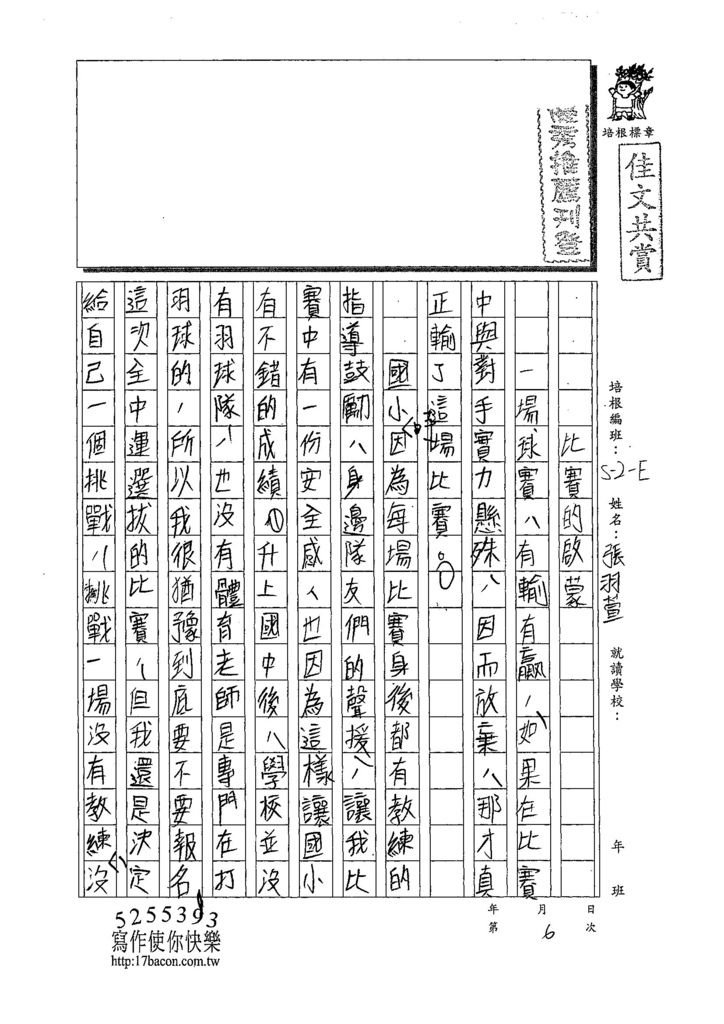 培根標章
佳文共賞
優秀推薦刊登
培根編班：S-2-E 姓名：張羽萱 就讀學校： 年 班
比賽的啟蒙
一場球賽，有輸有贏，如果在比賽
中與對手實力懸殊，因而放棄，那才真
正輸了這場比賽。
國小因為每場比賽身後都有教練的
指導鼓勵，身邊隊友們的聲援，讓我比
賽中有一份安全感，也因為這樣讓國小
有不錯的成績。升上國中後，學校並沒
有羽球隊，也沒有體育老師是專門在打
羽球的，所以我很猶豫到底要不要報名
這次全中運選拔的比賽，但我還是決定
給自己一個挑戰，挑戰一場沒有教練、沒
年 月 日
第 6 次
5255393
寫作使你快樂
http:17bacon.com.tw